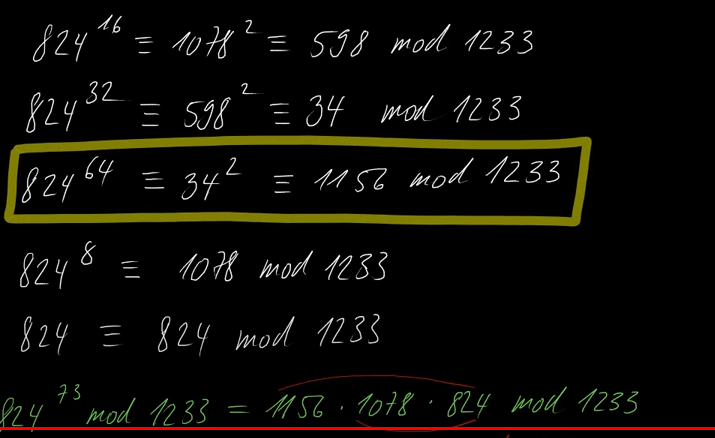 824^16 ≡ 1078^2 ≡ 598 mod 1233
824^32 ≡ 598^2 ≡ 34 mod 1233
824^64 ≡ 34^2 ≡ 1156 mod 1233
824^8 ≡ 1078 mod 1233
824 ≡ 824 mod 1233
824^73 mod 1233 = 1156 · 1078 · 824 mod 1233